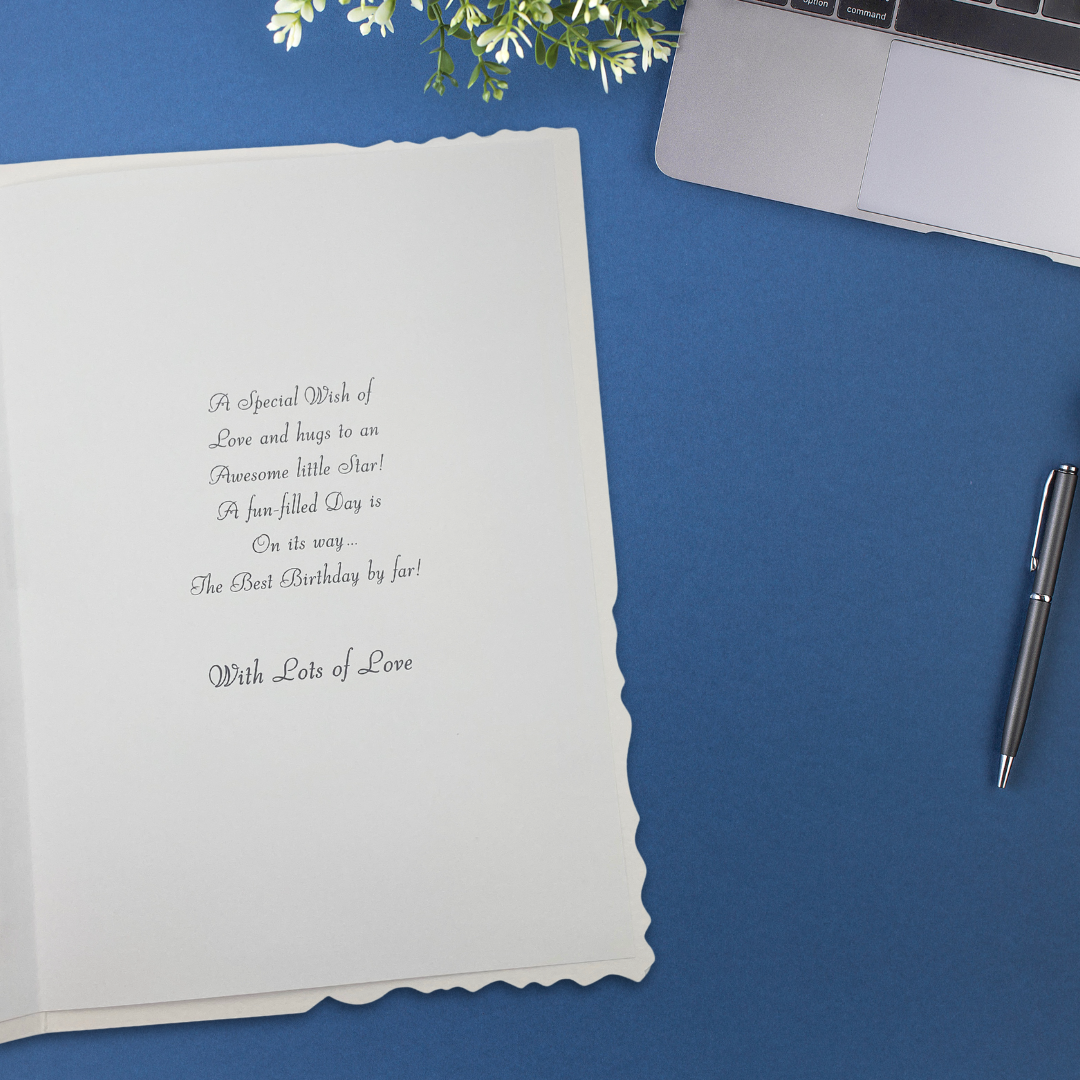 option
command
A Special Wish of
Love and hugs to an
Awesome little Star!
A fun-filled Day is
On its way...
The Best Birthday by far!
With Lots of Love